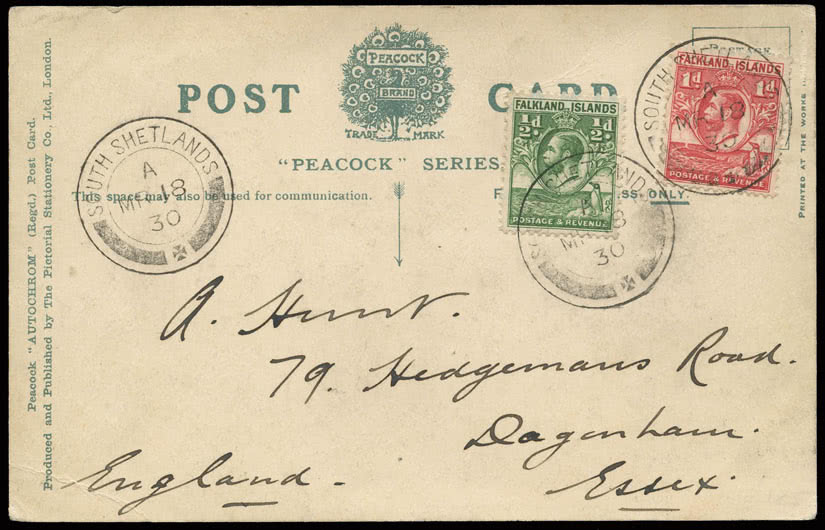 POST CARD
PEACOCK
BRAND
TRADE MARK
"PEACOCK" SERIES
This space may also be used for communication.
ONLY.
POSTAGE
FALKLAND ISLANDS
½d. ½d.
POSTAGE & REVENUE
FALKLAND ISLANDS
1d 1d
POSTAGE & REVENUE
SOUTH SHETLANDS
A
MR 18
30
SOUTH SHETLANDS
A
MR 18
30
SOUTH SHETLANDS
A
MR 18
30
A. Hunt.
79. Hedgemans Road.
Dagenham.
Essex.
England.
Peacock "AUTOCHROM" (Regd.) Post Card.
Produced and Published by The Pictorial Stationery Co., Ltd., London.
PRINTED AT THE WORKS